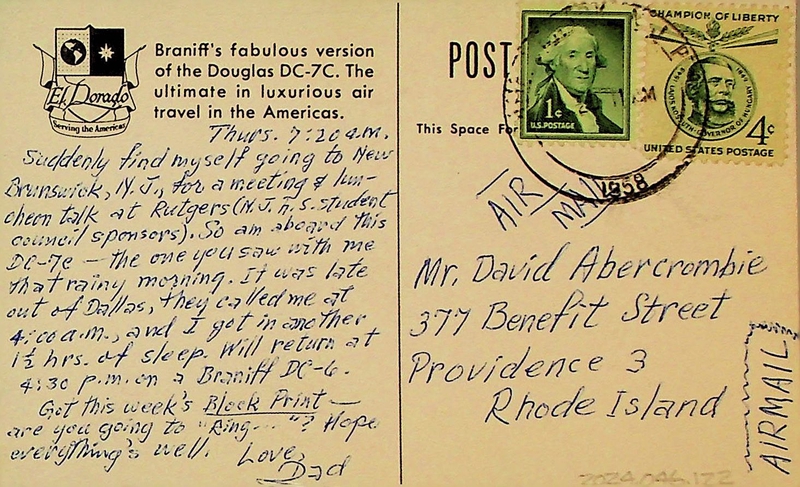 Braniff's fabulous version
of the Douglas DC-7C. The
ultimate in luxurious air
travel in the Americas.
El Dorado
Serving the Americas
Thurs. 7:20 a.m.
Suddenly find myself going to New
Brunswick, N.J., for a meeting & lun-
cheon talk at Rutgers (N.J. h.s. student
council sponsors). So am aboard this
DC-7c — the one you saw with me
that rainy morning. It was late
out of Dallas, they called me at
4:00 a.m., and I got in another
1½ hrs. of sleep. Will return at
4:30 p.m. on a Braniff DC-6.
Got this week's Block Print —
are you going to "Ring..."? Hope
everything's well.
Love,
Dad
POST
This Space For
1¢
U.S. POSTAGE
CHAMPION OF LIBERTY
LOUIS KOSSUTH-GOVERNOR OF HUNGARY
1848 1849
4¢
UNITED STATES POSTAGE
1958
AIR
MAIL
Mr. David Abercrombie
377 Benefit Street
Providence 3
Rhode Island
AIRMAIL
2024.046.122